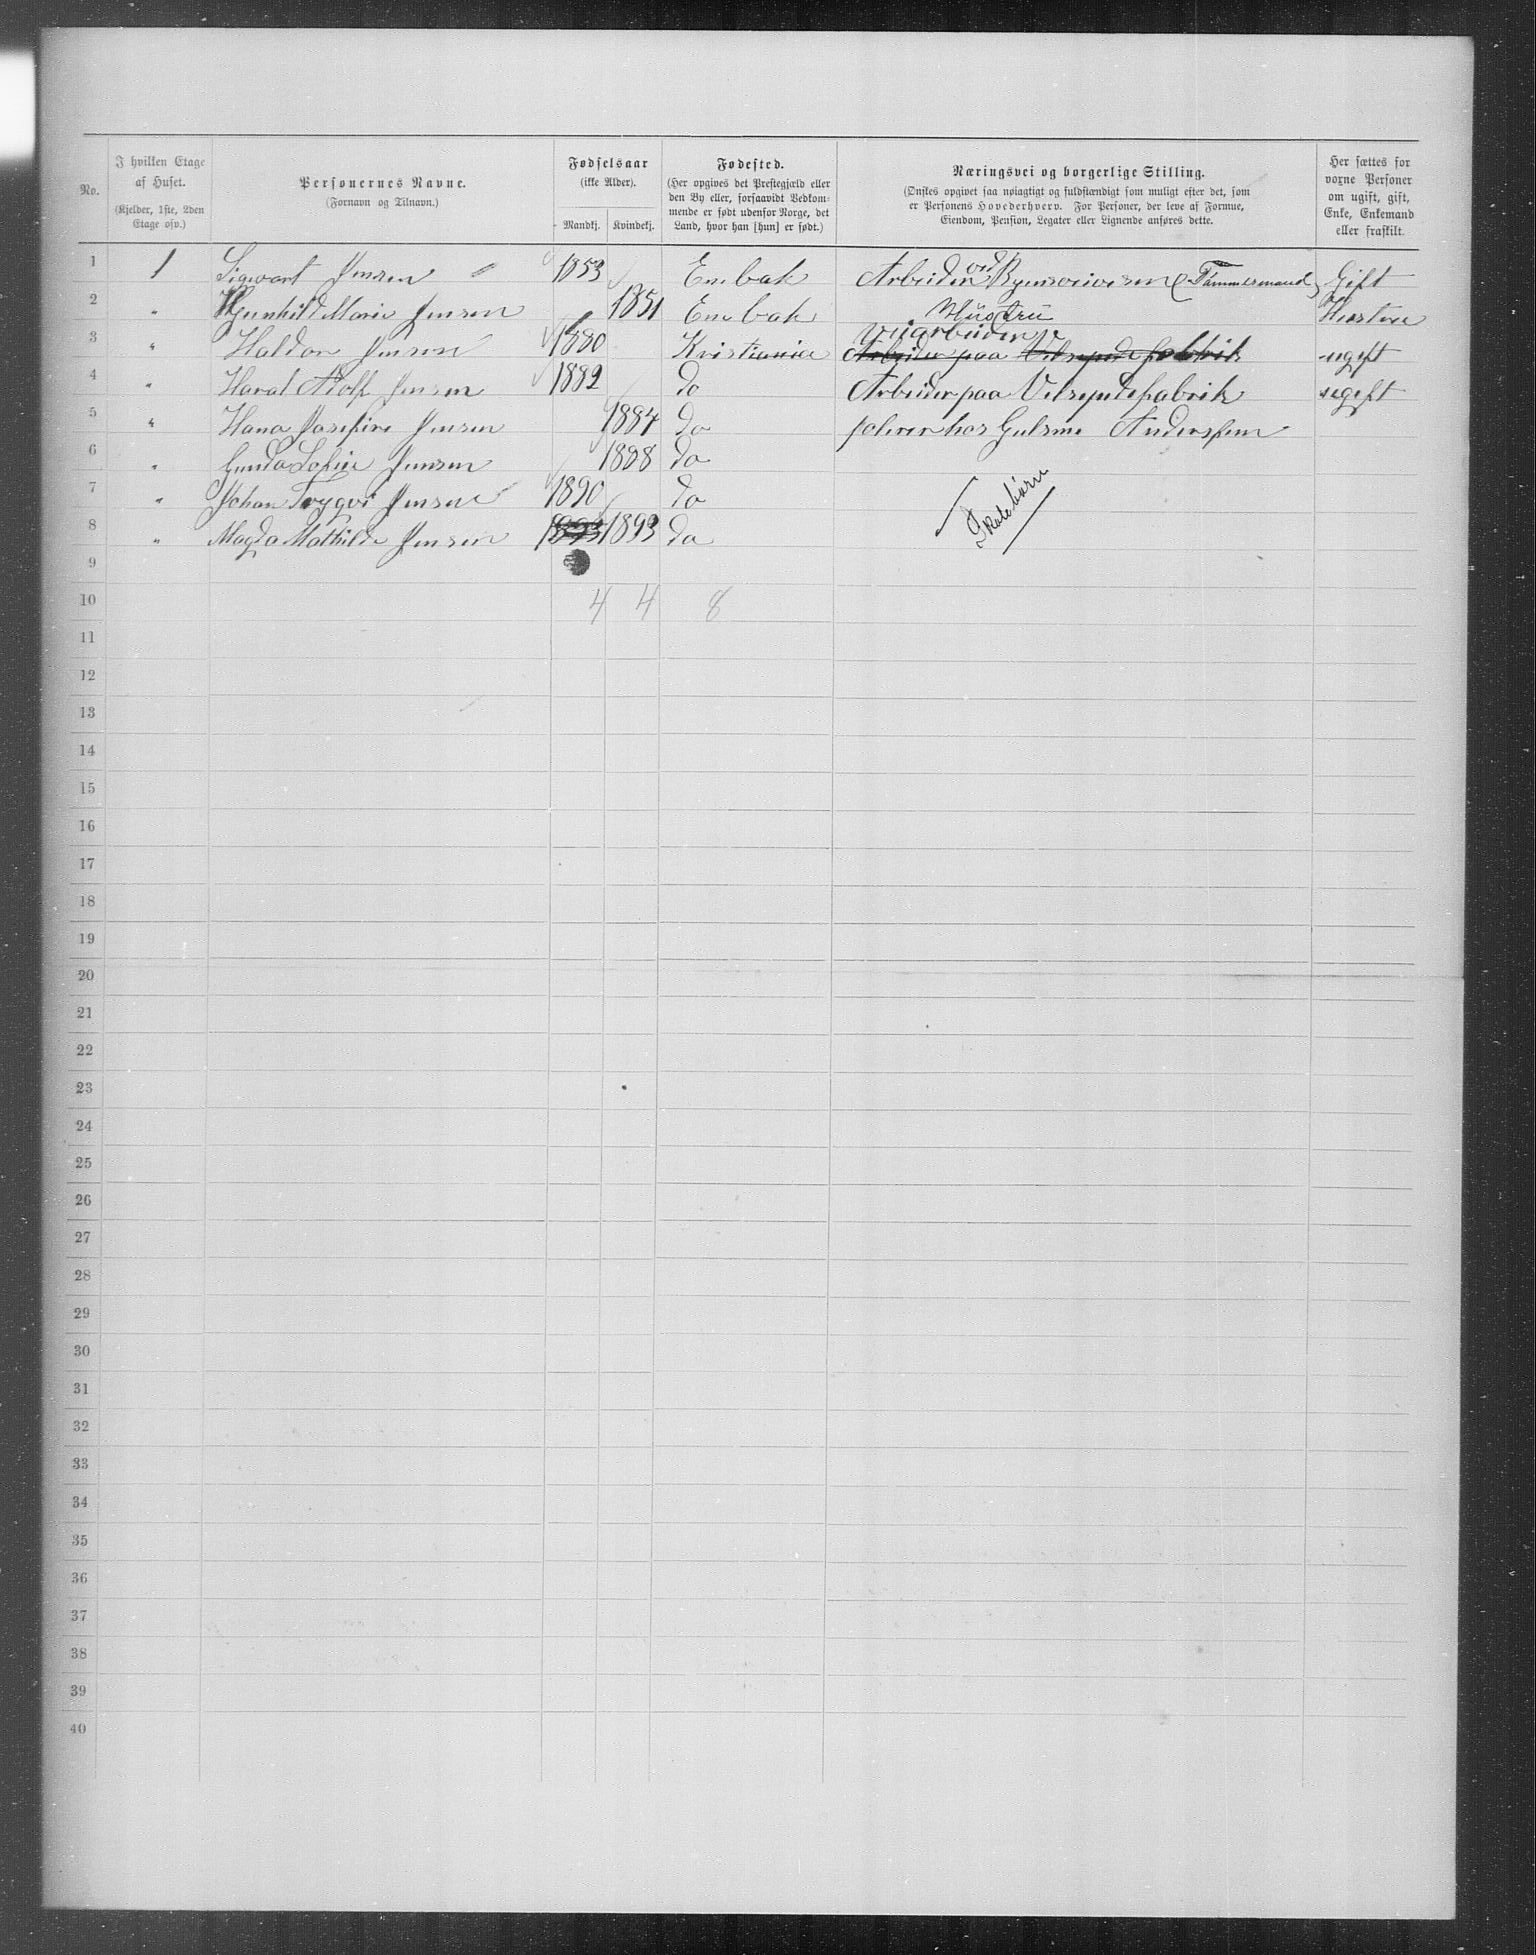 No. | I hvilken Etage af Huset. (Kjelder, 1ste, 2den Etage osv.) | Personernes Navne. (Fornavn og Tilnavn.) | Fødselsaar (ikke Alder). Mandkj. | Kvindekj. | Fødested. (Her opgives det Prestegjæld eller den By eller, forsaavidt Vedkommende er født udenfor Norge, det Land, hvor han [hun] er født.) | Næringsvei og borgerlige Stilling. (Ønskes opgivet saa nøiagtigt og fuldstændigt som muligt efter det, som er Personens Hovederhverv. For Personer, der leve af Formue, Eiendom, Pension, Legater eller Lignende anføres dette. | Her sættes for voxne Personer om ugift, gift, Enke, Enkemand eller fraskilt.
1 | 1 | Sigwart Jensen | 1853 | | Enebak | Arbeider ved (Tømmermand) | Gift
2 | " | Gunhild Marie Jensen | | 1851 | Enebak | Hüstrü | Hustru
3 | " | Haldor Jensen | 1880 | | Kristiania | Veiarbeider Arbeider paa fabrik | ugift
4 | " | Haral Adolf Jensen | 1882 | | do | Arbeider paa fabrik | ugift
5 | " | Hana Josefine Jensen | | 1884 | do | hos Anderssen
6 | " | Gunda Sofie Jensen | | 1888 | do
7 | " | Johan Trygvi Jensen | 1890 | | do | Skolebørn
8 | " | Magda Mathilde Jensen | 1893 | 1893 | do
9
10 | | | 4 | 4 | 8
11
12
13
14
15
16
17
18
19
20
21
22
23
24
25
26
27
28
29
30
31
32
33
34
35
36
37
38
39
40